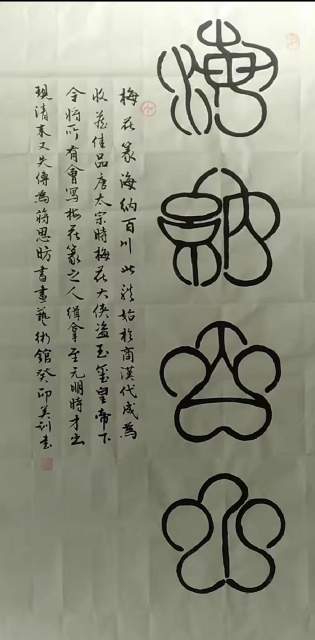 海納百川
梅花篆海納百川此從始於商漢代成為
收藏佳品唐太宗時梅花大俠盜玉璽皇帝下
令將所有會寫梅花篆之人緝拿至元明時才出
現清末又失傳為蔣思昉書畫藝術館癸卯美訓書